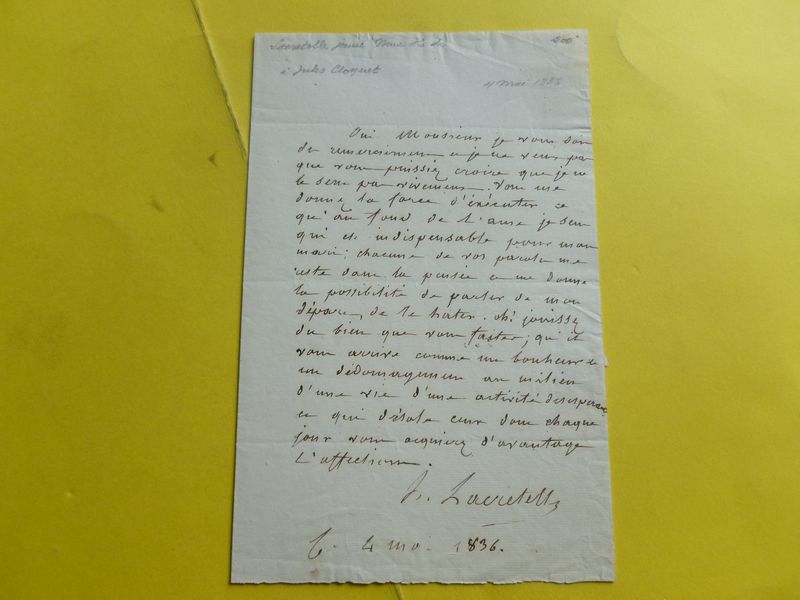 à Jules Cloquet
4 mai 1836
Oui Monsieur je vous dois
du remerciemens et je ne veux pas
que vous puissiez croire que je ne
le sens pas vivement. Vous me
donne la force d'exécuter ce
qu'au fond de l'ame je sens
qui est indispensable pour mon
mari; chacune de vos parole me
reste dans la pensée et me donne
la possibilité de parler de mon
départ, de le hater. oh! jouissez
du bien que vous faites; qu'il
vous arrive comme un bonheur et
un dédomagement au milieu
d'une vie d'une activité
et qui désole ceux dont chaque
jour vous acquierez d'avantage
l'affection.
Lacretelle
4 mai 1836.